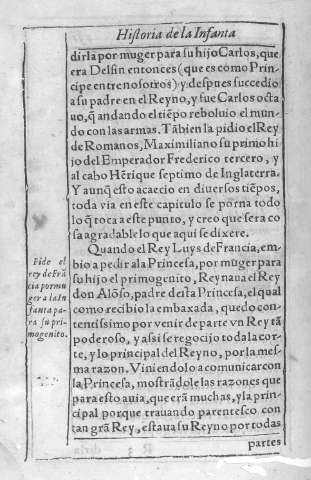 Historia de la Infanta
dirla por muger para su hijo Carlos, que
era Delfin entonces (que es como Prin-
cipe entre nosotros) y despues succedio
a su padre en el Reyno, y fue Carlos octa
uo, q̃ andando el tiẽpo reboluio el mun-
do con las armas. Tãbien la pidio el Rey
de Romanos, Maximiliano su primo hi
jo del Emperador Frederico tercero, y
al cabo Hẽrique septimo de Inglaterra.
Y aunq̃ esto acaecio en diuersos tiẽpos,
toda via en este capitulo se porna todo
lo q̃ toca a este punto, y creo que sera co
sa agradable lo que aqui se dixere.
Quando el Rey Luys de Francia, em-
bio a pedir a la Princesa, por muger para
su hijo el primogenito, Reynaua el Rey
don Alõso, padre desta Princesa, el qual
como recibio la embaxada, quedo con-
tentissimo por venir de parte vn Rey tã
poderoso, y assi se regocijo toda la cor-
te, y lo principal del Reyno, por la mes-
ma razon. Viniendolo a comunicar con
la Princesa, mostrãdole las razones que
para esto auia, que erã muchas, y la prin
cipal porque trauando parentesco con
tan grã Rey, estaua su Reyno por todas
partes
Pide el
rey de Frã
cia por mu
ger a la In
fanta pa-
ra su pri-
mogenito.